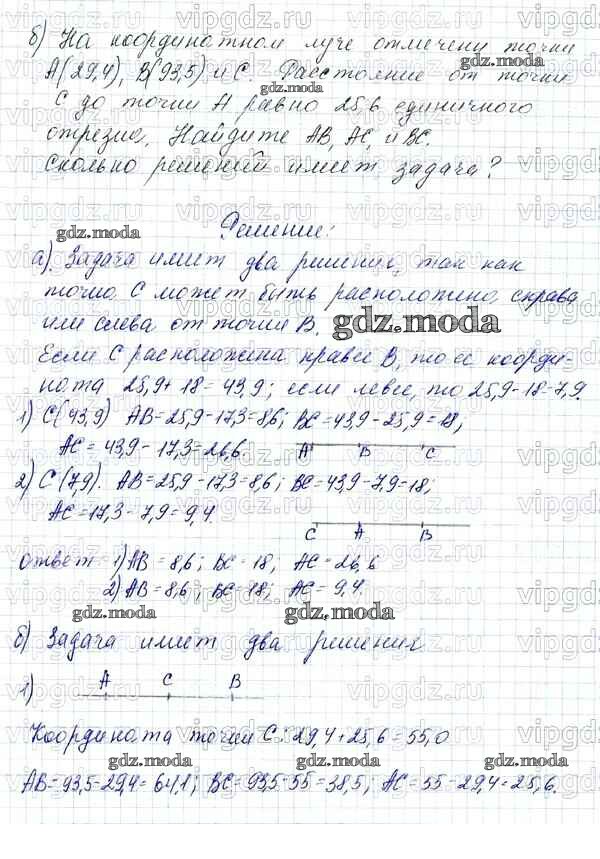 б) На координатном луче отмечены точки
А(29,4), В(93,5) и С. Расстояние от точки
С до точки А равно 25,6 единичного
отрезка. Найдите АВ, АС, и ВС.
Сколько решений имеет задача?
Решение:
а). Задача имеет два решения, так как
точка С может быть расположена справа
или слева от точки В.
Если С расположена правее В, то ее коорди-
ната 25,9+18=43,9; если левее, то 25,9-18=7,9.
1) С(43,9) АВ=25,9-17,3=8,6; ВС=43,9-25,9=18;
АС=43,9-17,3=26,6.
А В С
2) С(7,9). АВ=25,9-17,3=8,6; ВС=43,9-7,9=18;
АС=17,3-7,9=9,4.
С А В
Ответ 1) АВ=8,6; ВС=18, АС=26,6
2) АВ=8,6; ВС=18; АС=9,4.
б) Задача имеет два решения
1) А С В
Координата точки С: 29,4+25,6=55,0
АВ=93,5-29,4=64,1; ВС=93,5-55=38,5; АС=55-29,4=25,6.
gdz.moda
vipgdz.ru